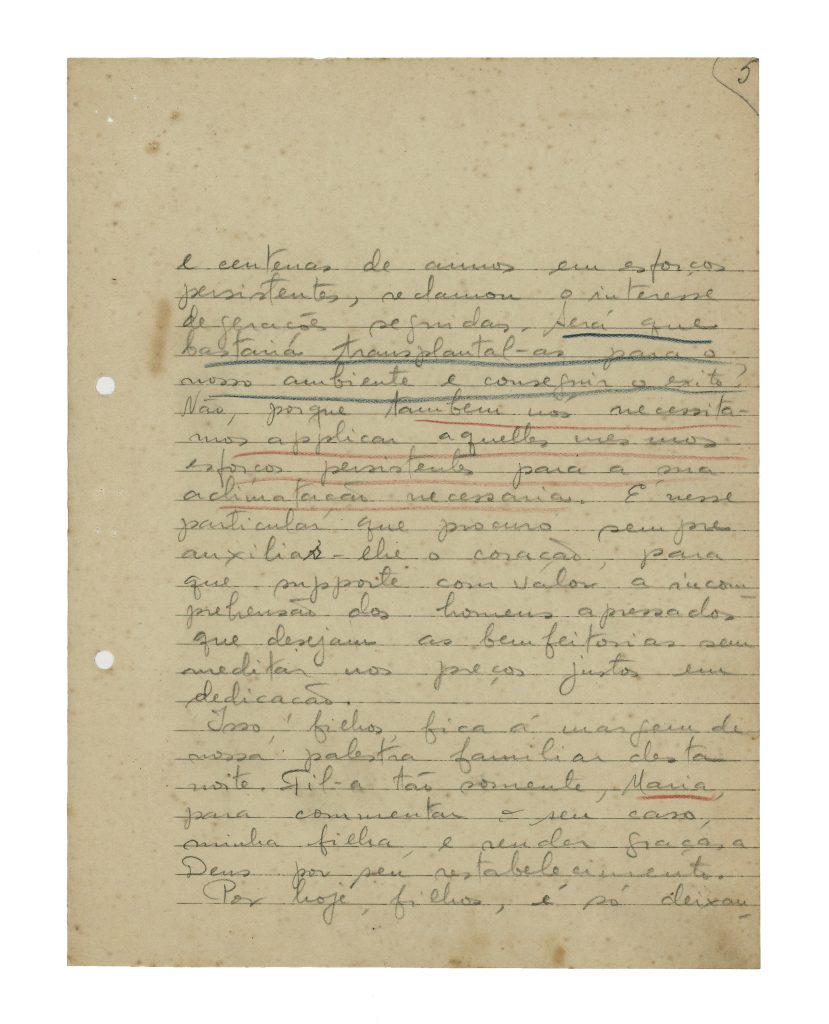 5
e centenas de annos em esforços
persistentes, reclamou o interesse
de gerações seguidas. Será que
bastaria transplantal-as para o
nosso ambiente e conseguir o exito?
Não, porque tambem nós necessita-
mos applicar aquelles mesmos
esforços persistentes para a sua
aclimatação necessaria. E' nesse
particular que procuro sempre
auxiliar-lhe o coração, para
que supporte com valor a incom-
prehensão dos homens apressados
que desejam as bemfeitorias sem
meditar nos preços justos em
dedicação.
Isso, filhos, fica á margem de
nossa palestra familiar desta
noite. Fil-a tão somente, Maria,
para commentar o seu caso,
minha filha, e render graças a
Deus por seu restabelecimento.
Por hoje, filhos, é só deixan-